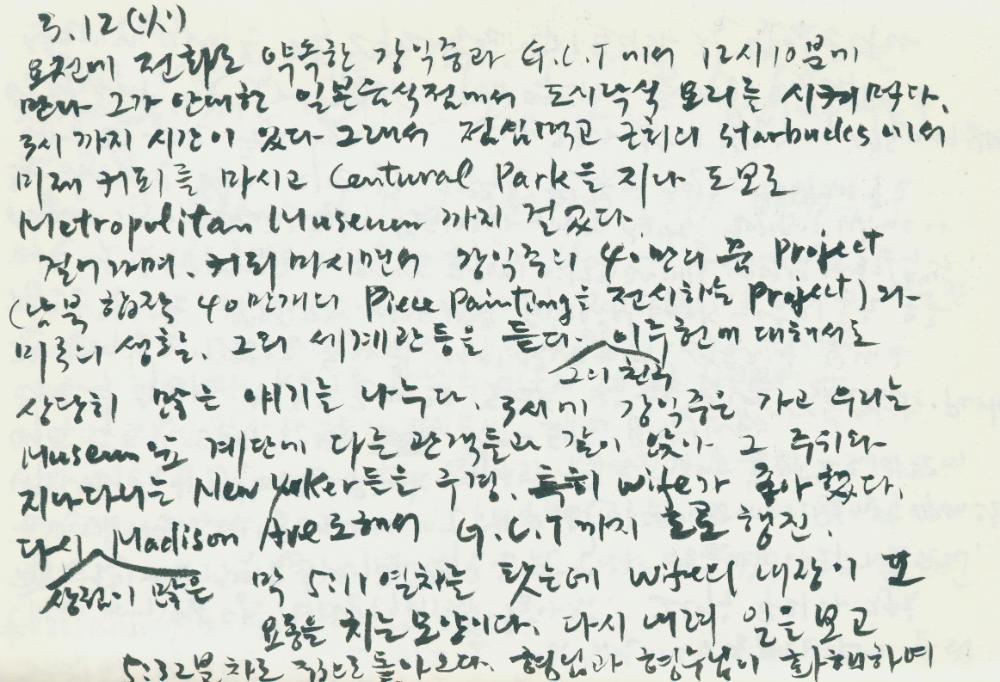 3.12 (火)
요전에 전화로 약속한 강익중과 G.C.T에서 12시10분에
만나 그가 안내한 일본음식점에서 도시락식 요리를 시켜먹다.
3시까지 시간이 있다 그래서 점심먹고 근처의 Starbucks에서
미제 커피를 마시고 Centural Park을 지나 도보로
Metropolitan Museum까지 걸었다
걸어가며, 커피마시면서 강익중의 40만의 꿈 Project
(남북합작 40만개의 Piece Painting을 전시하는 Project)와
미국의 생활, 그의 세계관등을 듣다. 이주헌에 대해서도
그의 친구
상당히 많은 얘기를 나누다. 3시에 강익중은 가고 우리는
Museum 앞 계단에 다른 관객들과 같이 앉아 그 주위와
지나다니는 New Yorker들을 구경, 특히 wife가 좋아했다.
다시 Madison Ave 통해서 G.C.T까지 도로 행진.
상점이 많은 막 5:11 열차를 탔는데 wife의 내장이 또
요동을 치는모양이다. 다시 내려 일을 보고
5:32분차로 집으로 돌아오다. 형님과 형수님이 화해하여